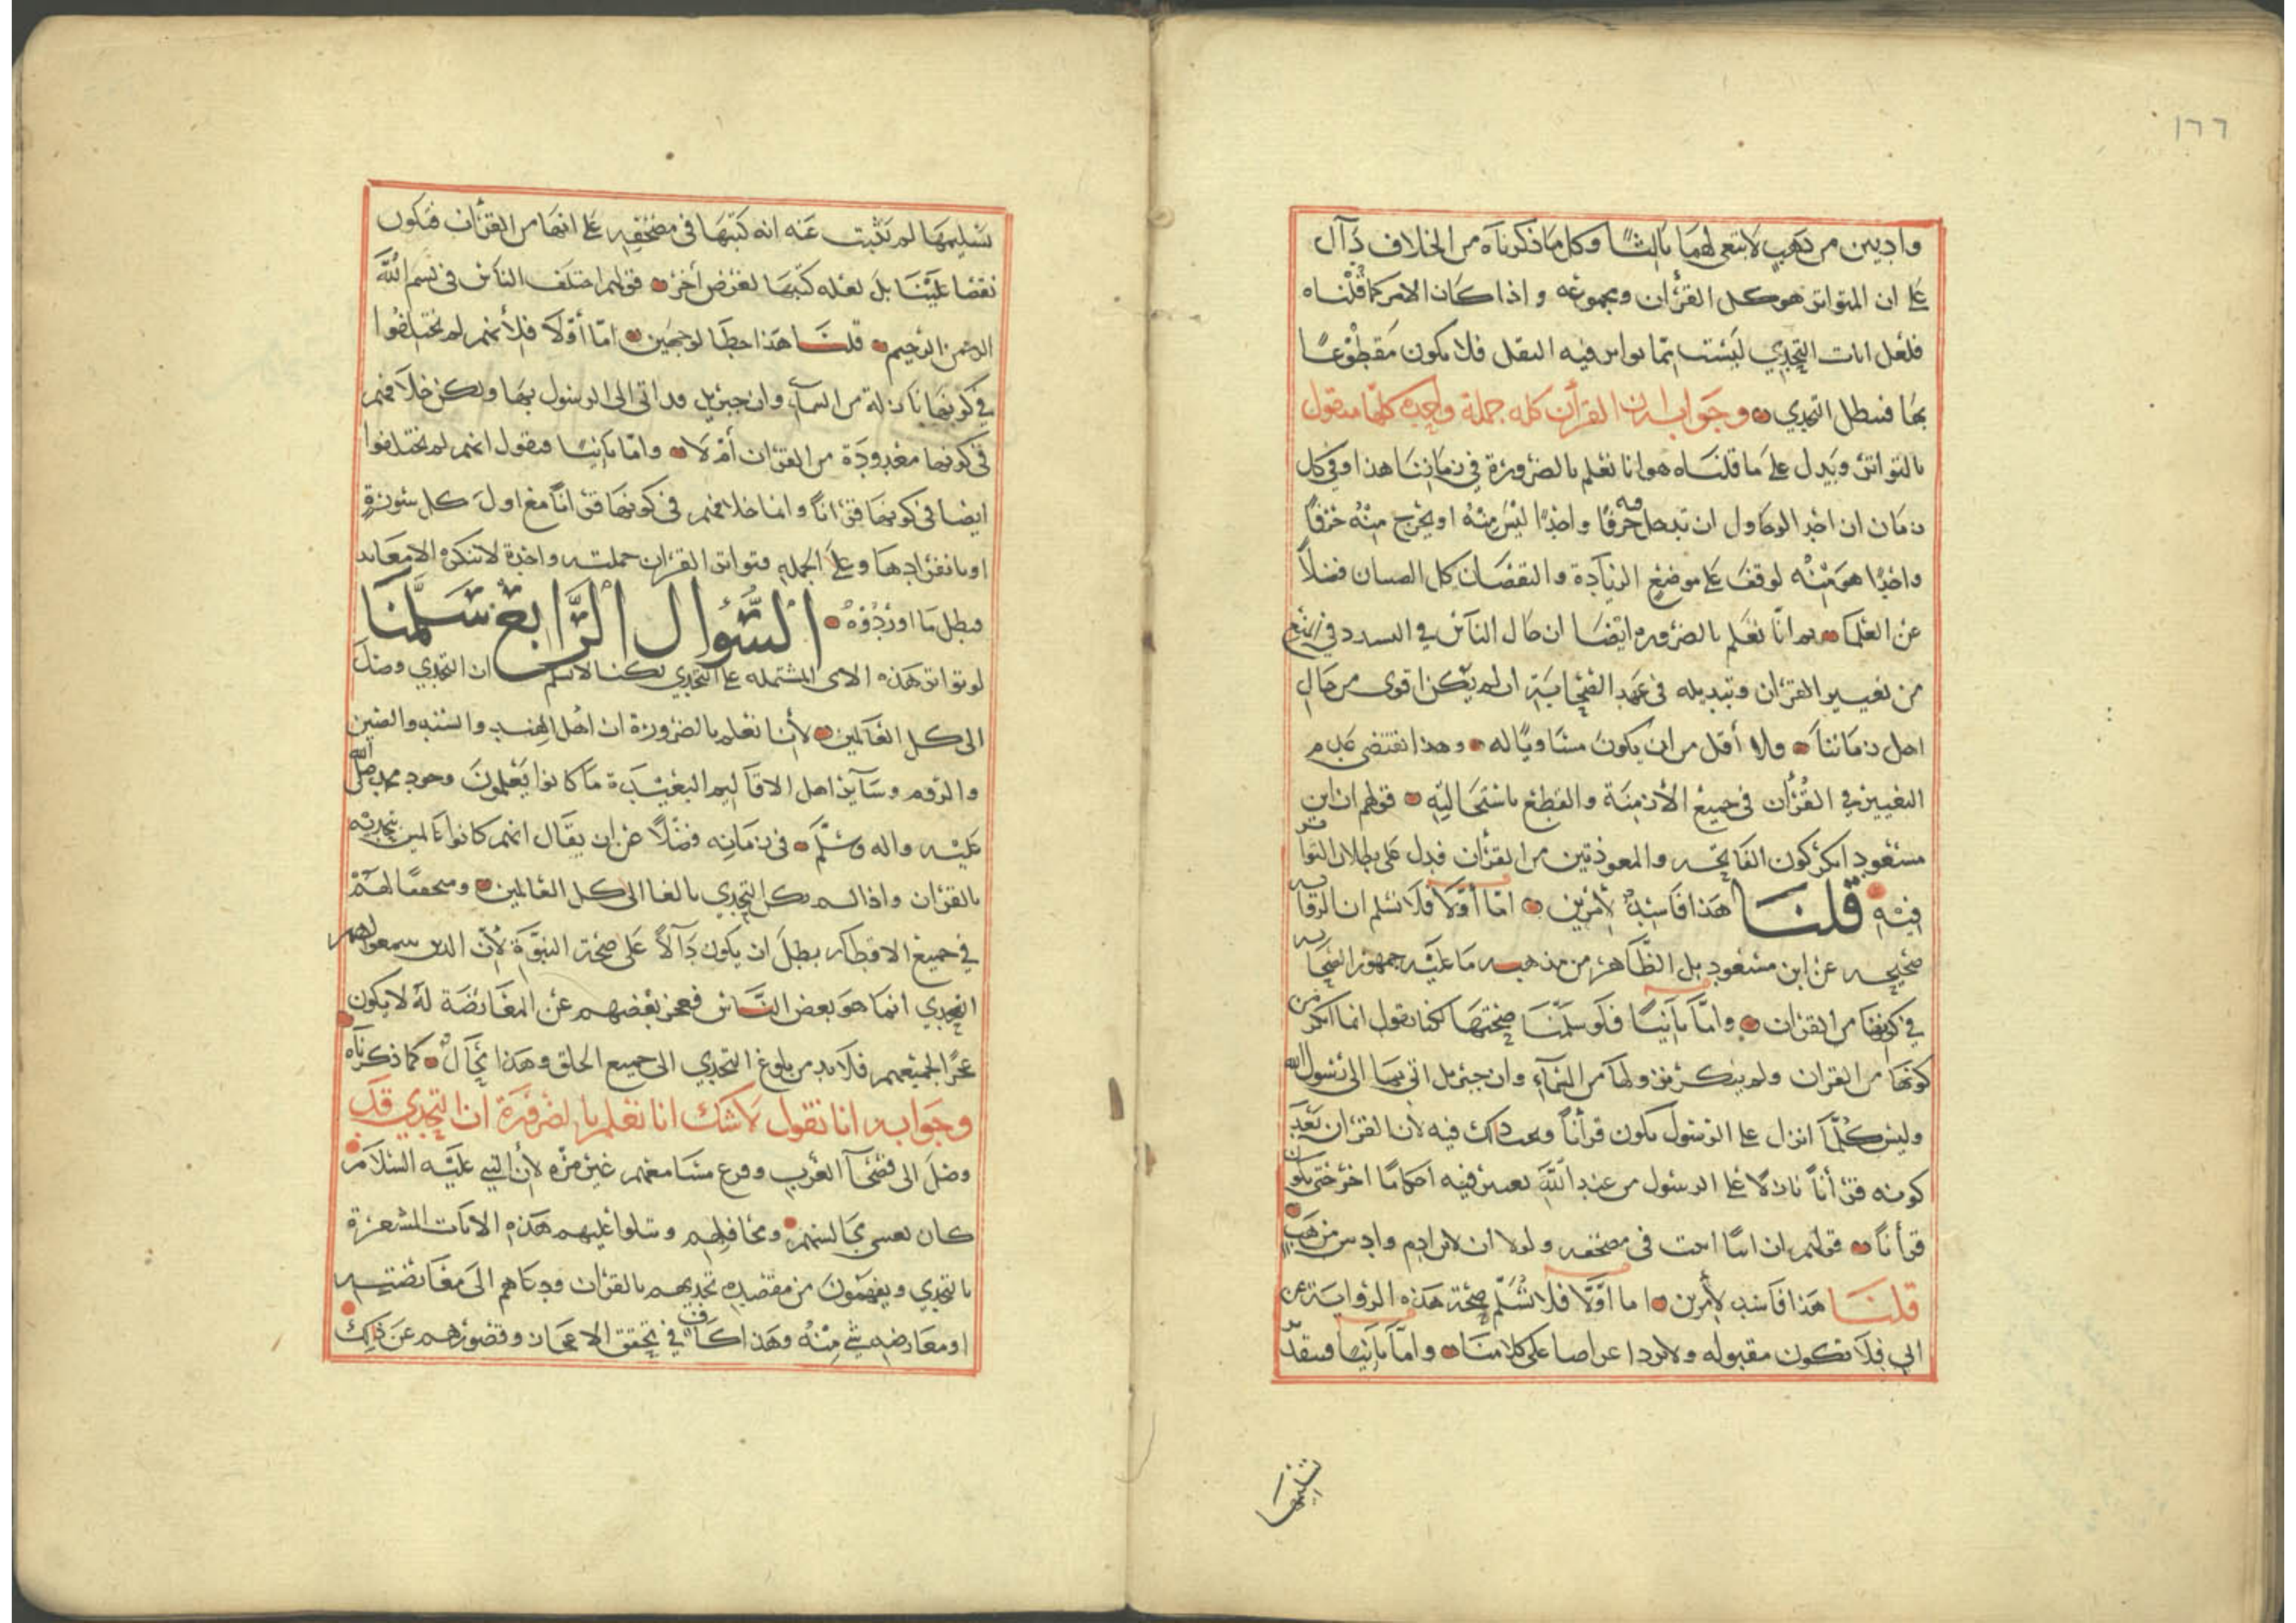 ١٦٦
واديين من ذهب لابتغى لهما ثالثا وكل ما ذكرناه من الخلاف دآل
على ان المتواتر هو كل القرأن ومجموعه واذا كان الامر كما قلناه
فلعل ايات التحدي ليست مما تواتر فيه النقل فلا يكون مقطوعا
بها فبطل التحدي وجوابه ان القرأن كله جملة واحده كلها منقول
بالتواتر ويدل على ما قلناه هو انا نعلم بالضرورة في زماننا هذا وفي كل
زمان ان احدا لو حاول ان يدخل فيه حرفا واحدا ليس منه او يخرج منه حرفا
واحدا هو منه لوقف على موضع الزيادة والنقصان كل الصبيان فضلا
عن العلما ثم انا نعلم بالضروره ايضا ان حال الناس في التشدد في المنع
من تغيير القرأن وتبديله في عهد الصحابة ان لم يكن اقوى من حال
اهل زماننا فلا أقل من ان يكون مساويا له وهذا يقتضي عدم
التغيير في القرأن في جميع الأزمنة والقطع باستحاليته قولهم ان ابن
مسعود انكر كون الفاتحه والمعوذتين من القرأن فدل على بطلان التواتر
فيه قلنا هذا فاسد لأمرين اما أولا فلا نسلم ان الرواية
صحيحه عن ابن مسعود بل الظاهر من مذهبه ما عليه جمهور الصحابه
في كونها من القران واما ثانيا فلو سلمنا صحتها لكنا نقول انما انكر
كونها من القران ولم ينكر نزولها من السمآء وان جبريل اتى بها الى رسول الله
وليس كلما انزل على الرسول يكون قرأنا فيه لان القران بعد
كونه قرأنا نازلا على الرسول من عند الله فيه احكاما اخر حتى يكون
قرأنا قولهم ان ابيا اثبت في مصحفه ولو ان لابن ادم واديين من ذهب
قلنا هذا فاسد لأمرين اما اوّلا فلا نسلم صحة هذه الرواية عن
ابي فلا تكون مقبوله ولا ترد اعتراضا على كلامنا واما ثانيا فبتقدير
تسليمها
تسليمها لم يثبت عنه انه كتبها في مصحفه على انها من القرأن فيكون
نقضا علينا بل لعله كتبها لغرض أخر قولهم اختلف الناس في بسم الله
الرحمن الرحيم قلنا هذا خطا لوجهين اما أولا فلأنهم لم يختلفوا
في كونها نازلة من السمآء وان جبريل قد اتى الى الرسول بها ولكن خلافهم
في كونها معدودة من القران أم لا واما ثانيا فنقول انهم لم يختلفوا
ايضا في كونها قرأنا وانما خلافهم في كونها قرأنا مع اول كل سورة
او بانفرادها وعلى الجمله فتواتر القران جملته واحدة لا ينكره الا معاند
فبطل ما اوردوه السؤال الرابع سلمنا
لو تواتر هذه الاى المشتمله على التحدي لكنا لا نسلم ان التحدي وصل
الى كل العالمين لأنا نعلم بالضرورة ان اهل الهند والسند والصين
والروم وسآئر اهل الاقاليم البعيدة ما كانوا يعلمون وجود محمد صلى الله
عليه واله وسلم في زمانه فضلا عن ان يقال انهم كانوا عالمين بتحديه
بالقرأن واذا لم يكن التحدي بالغا الى كل العالمين ومتحققا لهم
في جميع الاقطار بطل ان يكون دآلا على صحة النبوة لأن الذين سمعوا هم
التحدي انما هو بعض الناس فعجز بعضهم عن المعارضة له لا يكون
عجزا لجميعهم فلا بد من بلوغ التحدي الى جميع الخلق وهذا محال كما ذكرناه
وجوابه انا نقول لا شك انا نعلم بالضرورة ان التحدي قد
وصل الى فصحآ العرب وقرع مسامعهم غير مرّه لأن النبي عليه السلام
كان يغشى مجالسهم ومحافلهم ويتلوا عليهم هذه الايات المشعرة
بالتحدي ويفهمون من مقصده تحديهم بالقران ودعاهم الى معارضته
او معارضه شي منه وهذا كاف في تحقق الاعجاز وقصورهم عن ذلك